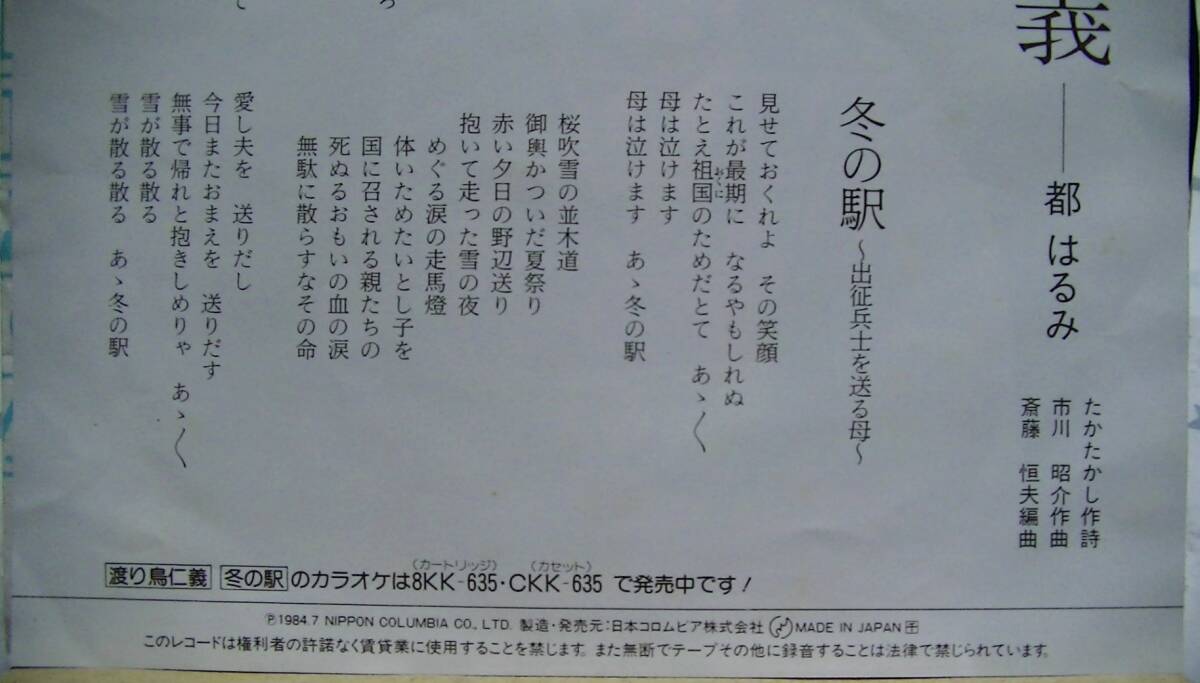 義――都 はるみ
たかたかし作詩
市川 昭介作曲
斎藤 恒夫編曲
冬の駅 ～出征兵士を送る母～
見せておくれよ その笑顔
これが最期に なるやもしれぬ
おくに
たとえ祖国のためだとて あゝ〱
母は泣けます
母は泣けます あゝ冬の駅
桜吹雪の並木道
御輿かついだ夏祭り
赤い夕日の野辺送り
抱いて走った雪の夜
めぐる涙の走馬燈
体いためたいとし子を
国に召される親たちの
死ぬるおもいの血の涙
無駄に散らすなその命
愛し夫を 送りだし
今日またおまえを 送りだす
無事で帰れと抱きしめりゃ あゝ〱
雪が散る散る
雪が散る散る あゝ冬の駅
(カートリッジ) (カセット)
渡り鳥仁義 冬の駅 のカラオケは8KK-635・CKK-635 で発売中です!
Ⓟ1984.7 NIPPON COLUMBIA CO., LTD. 製造・発売元：日本コロムビア株式会社 MADE IN JAPAN
このレコードは権利者の許諾なく賃貸業に使用することを禁じます。また無断でテープその他に録音することは法律で禁じられています。